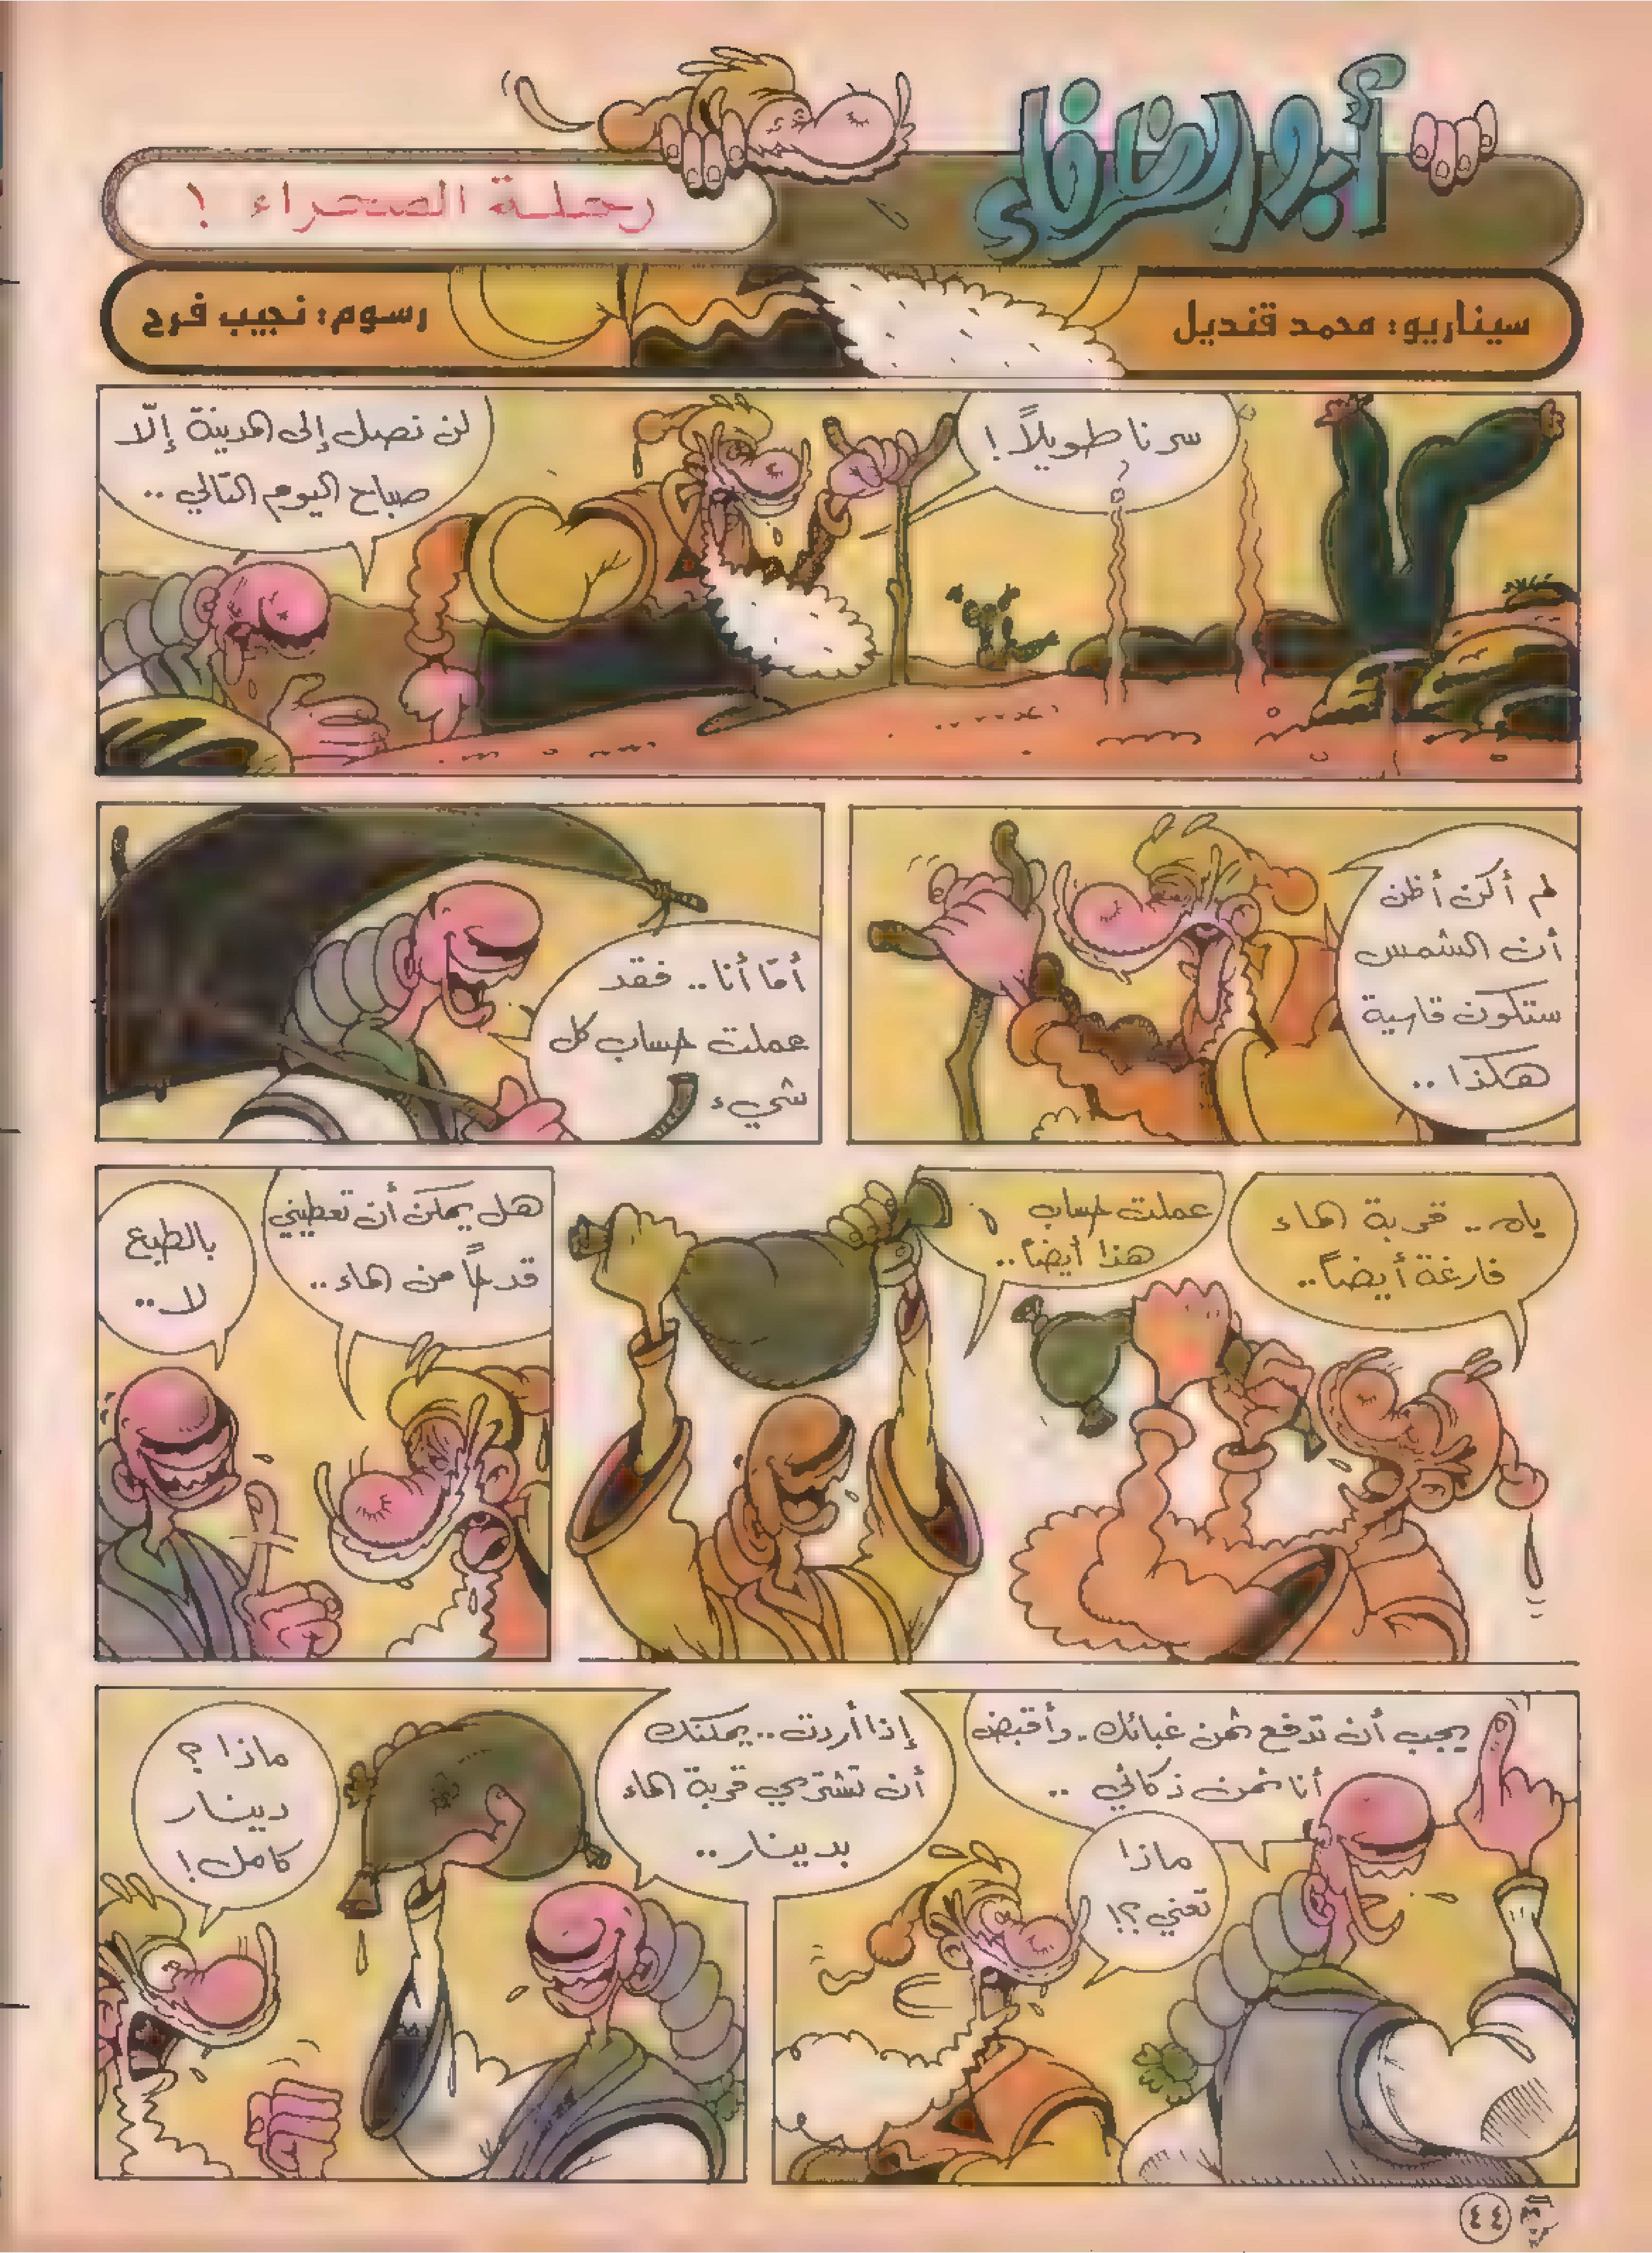 أبو الظرفاء
رحلة الصحراء !
سيناريو: محمد قنديل
رسوم: نجيب فرح
سرنا طويلاً !
لن نصل إلى المدينة إلّا
صباح اليوم التالي ..
لم أكن أظن
أن الشمس
ستكون قاسية
هكذا ..
أمّا أنا .. فقد
عملت حساب كل
شيء
ياه .. قربة الماء
فارغة أيضاً ..
عملت حساب
هذا أيضاً ..
هل يمكن أن تعطيني
قدحاً من الماء ..
بالطبع
لا ..
يجب أن تدفع ثمن غبائك . وأقبض
أنا ثمن ذكائي ..
ماذا
تعني ؟!
إذا أردت .. يمكنك
أن تشتري قربة الماء
بدينار ..
ماذا ؟
دينار
كامل !
٤٤